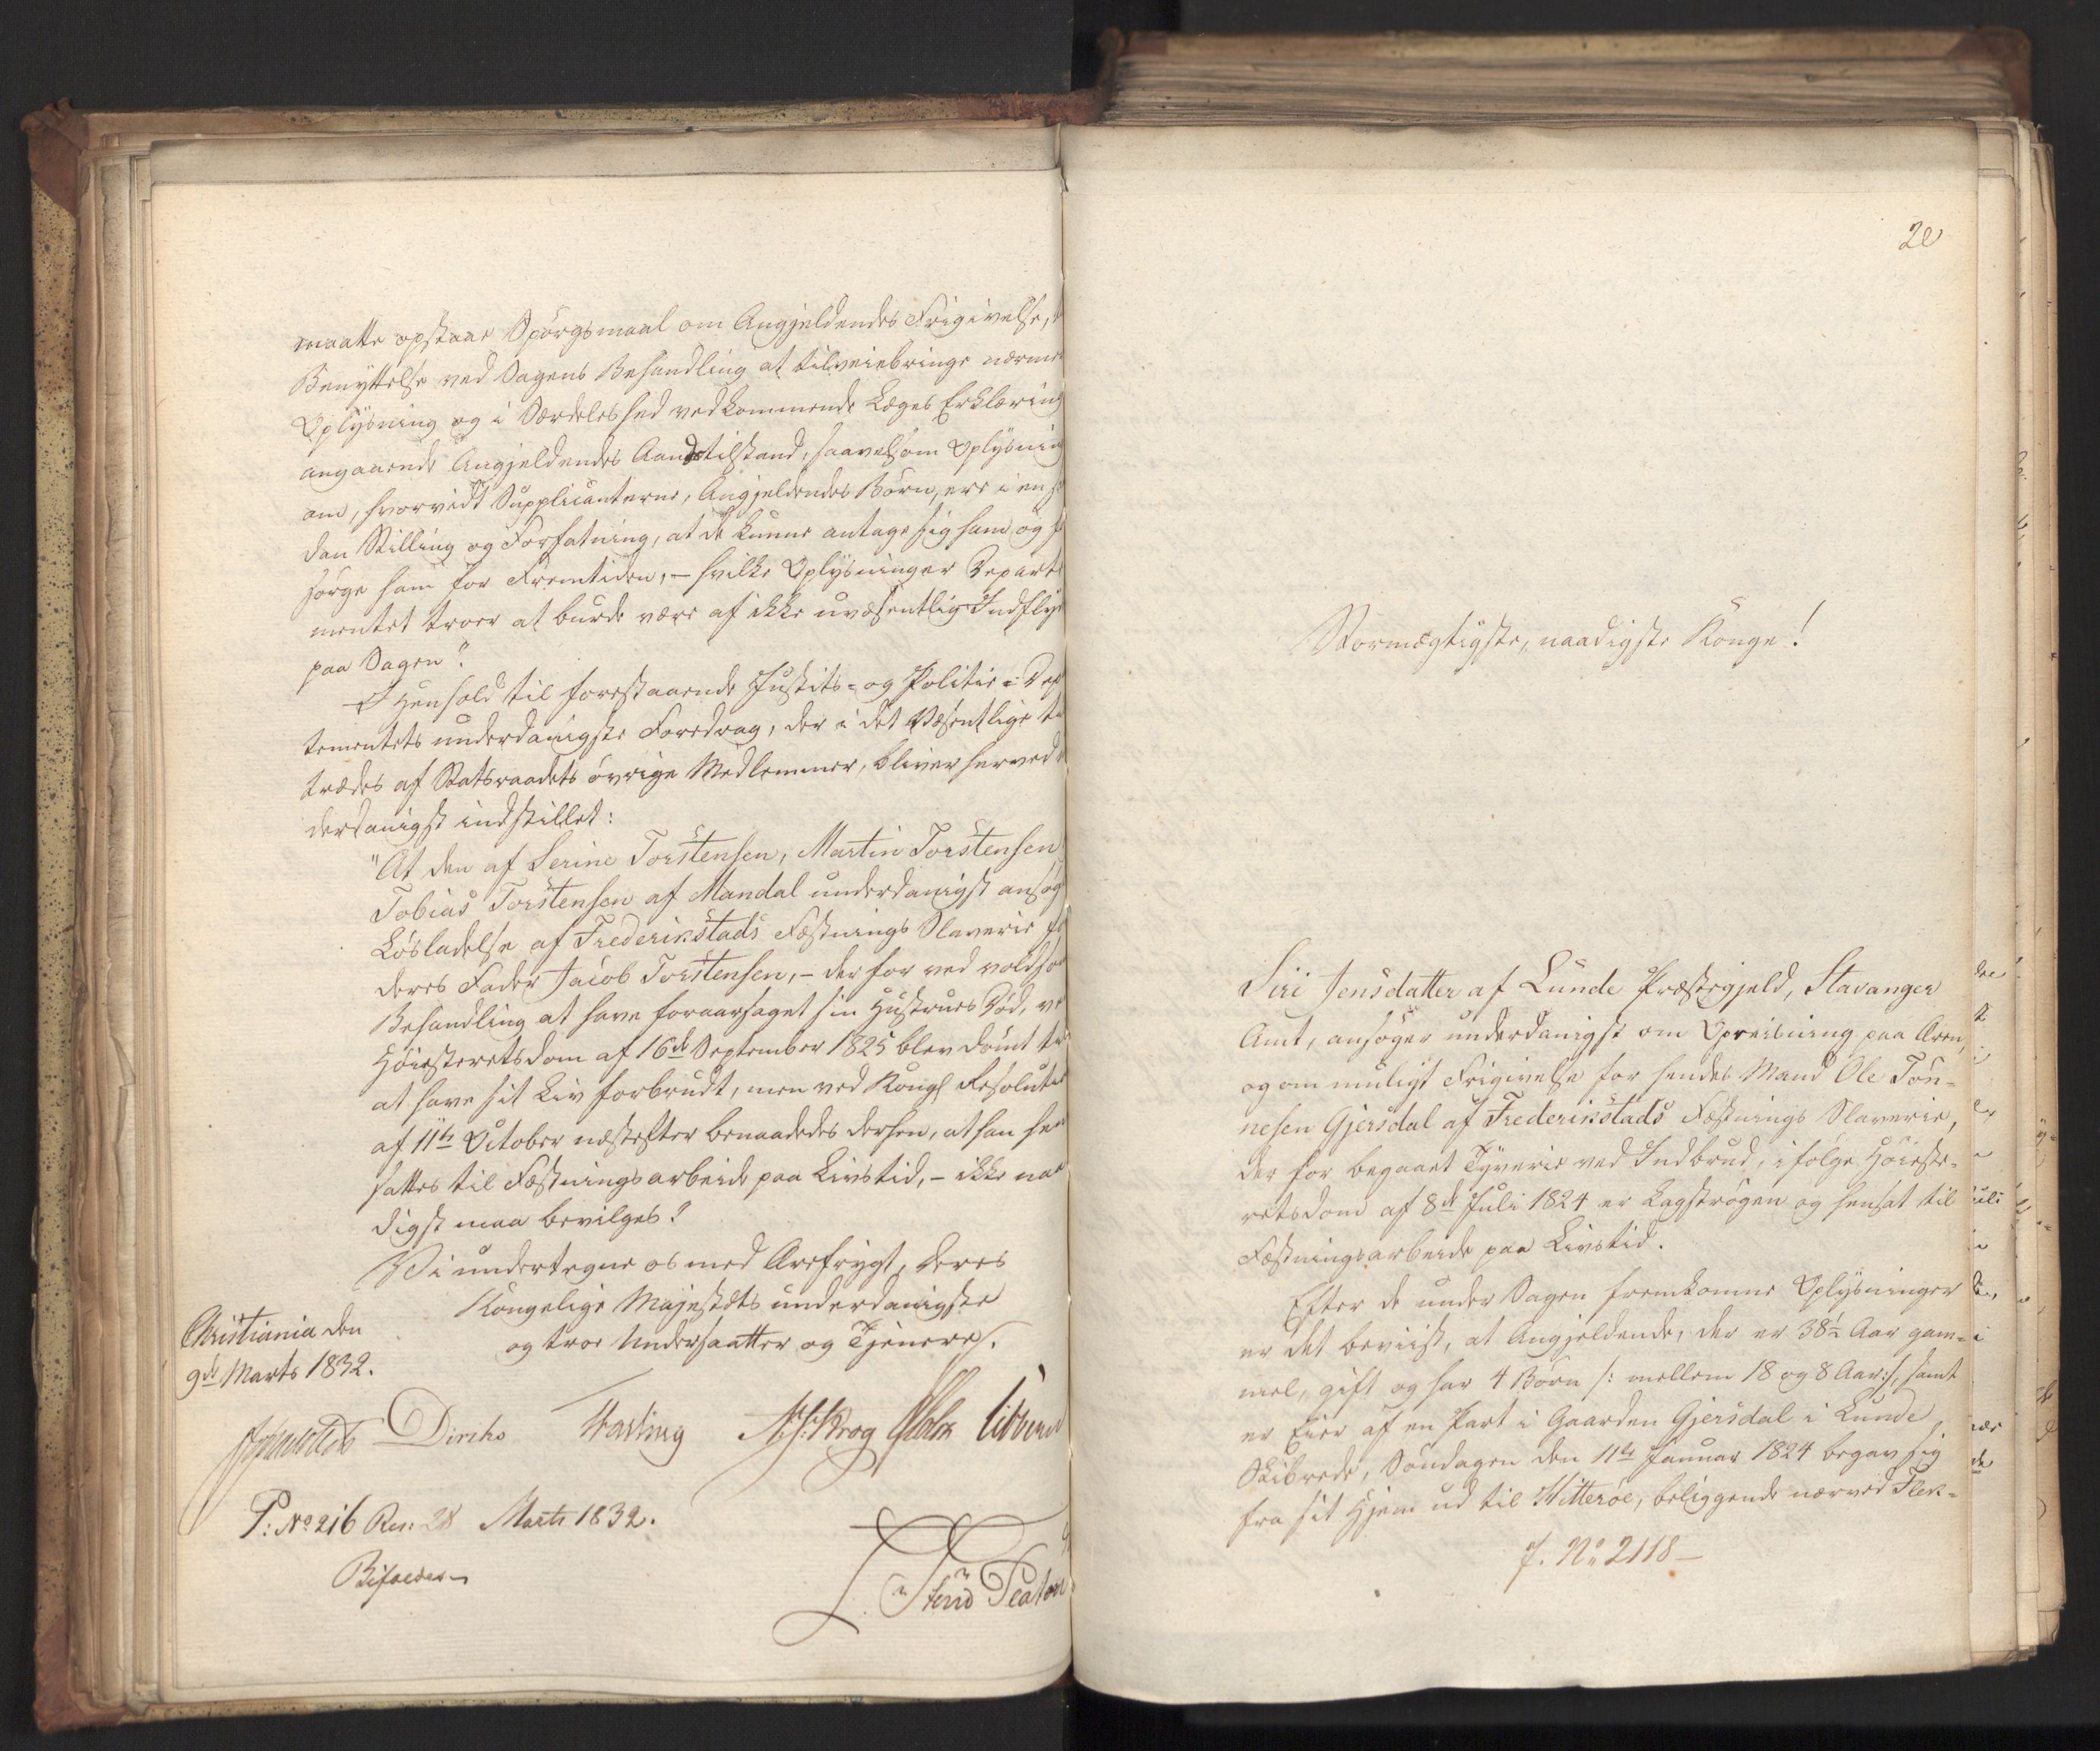 maatte opstaae Spörgsmaal om Angjeldendes Frigivelse,
Benyttelse ved Sagens Behandling at tilveiebringe nærme
Oplysning og i Særdeleshed vedkommende Læges Erklæring
angaaende Angjeldendes Aandstilstand, saavelsom Oplysnin
om, hvorvidt Supplicanterne, Angjeldendes Börn, ere i en
dan Stilling og Forfatning, at de kunne antage sig ham og
sörge ham for Fremtiden, – hvilke Oplysninger Departe
mentet troer at burde være af ikke uvæsentlig Indflyd
paa Sagen".
I Henhold til forestaaende Justits- og Politie-Dep
tementets underdanigste Foredrag, der i det Væsentlige til
trædes af Statsraadets övrige Medlemmer, bliver herved
derdanigst indstillet:
"At den af Serine Torstensen, Martin Torstensen
Tobias Torstensen af Mandal underdanigst ansög
Lösladelse af Frederikstads Fæstnings Slaverie fo
deres Fader Jacob Torstensen, – der for ved voldso
Behandling at have foraarsaget sin Hustrues Död, ve
Höiesteretsdom af 16de September 1825 blev dömt til
at have sit Liv forbrudt, men ved Kongl Resolution
af 11te October næstefter benaadedes derhen, at han hen
sattes til Fæstningsarbeide paa Livstid, – ikke naa
digst maa bevilges?
Vi undertegne os med Ærefrygt, Deres
Kongelige Majestæts underdanigste
og troe Undersaatter og Tjenere.
Christiania den
9de Marts 1832.
Diriks
P: No 216 Res: 28 Marts 1832.
Bifaldes
20
Stormægtigste, naadigste Konge!
Siri Jensdatter af Lunde Præstegjeld, Stavanger
Amt, ansöger underdanigst om Opreisning paa Æren,
og om muligt Frigivelse for hendes Mand Ole Tön-
nesen Gjersdal af Frederikstads Fæstnings Slaverie,
der for begaaet Tyverie ved Indbrud, ifölge Höieste-
retsdom af 8de Juli 1824 er Kagströgen og hensat til
Fæstningsarbeide paa Livstid.
Efter de under Sagen fremkomne Oplysninger
er det beviist, at Angjeldende, der er 38½ Aar gam-
mel, gift og har 4 Börn /: mellem 18 og 8 Aar:/, samt
er Eier af en Part i Gaarden Gjersdal i Lunde
Skibrede, Söndagen den 11te Januar 1824 begav sig
fra sit Hjem ud til Hitteröe, beliggende nærved Flek-
J. No 2118 –